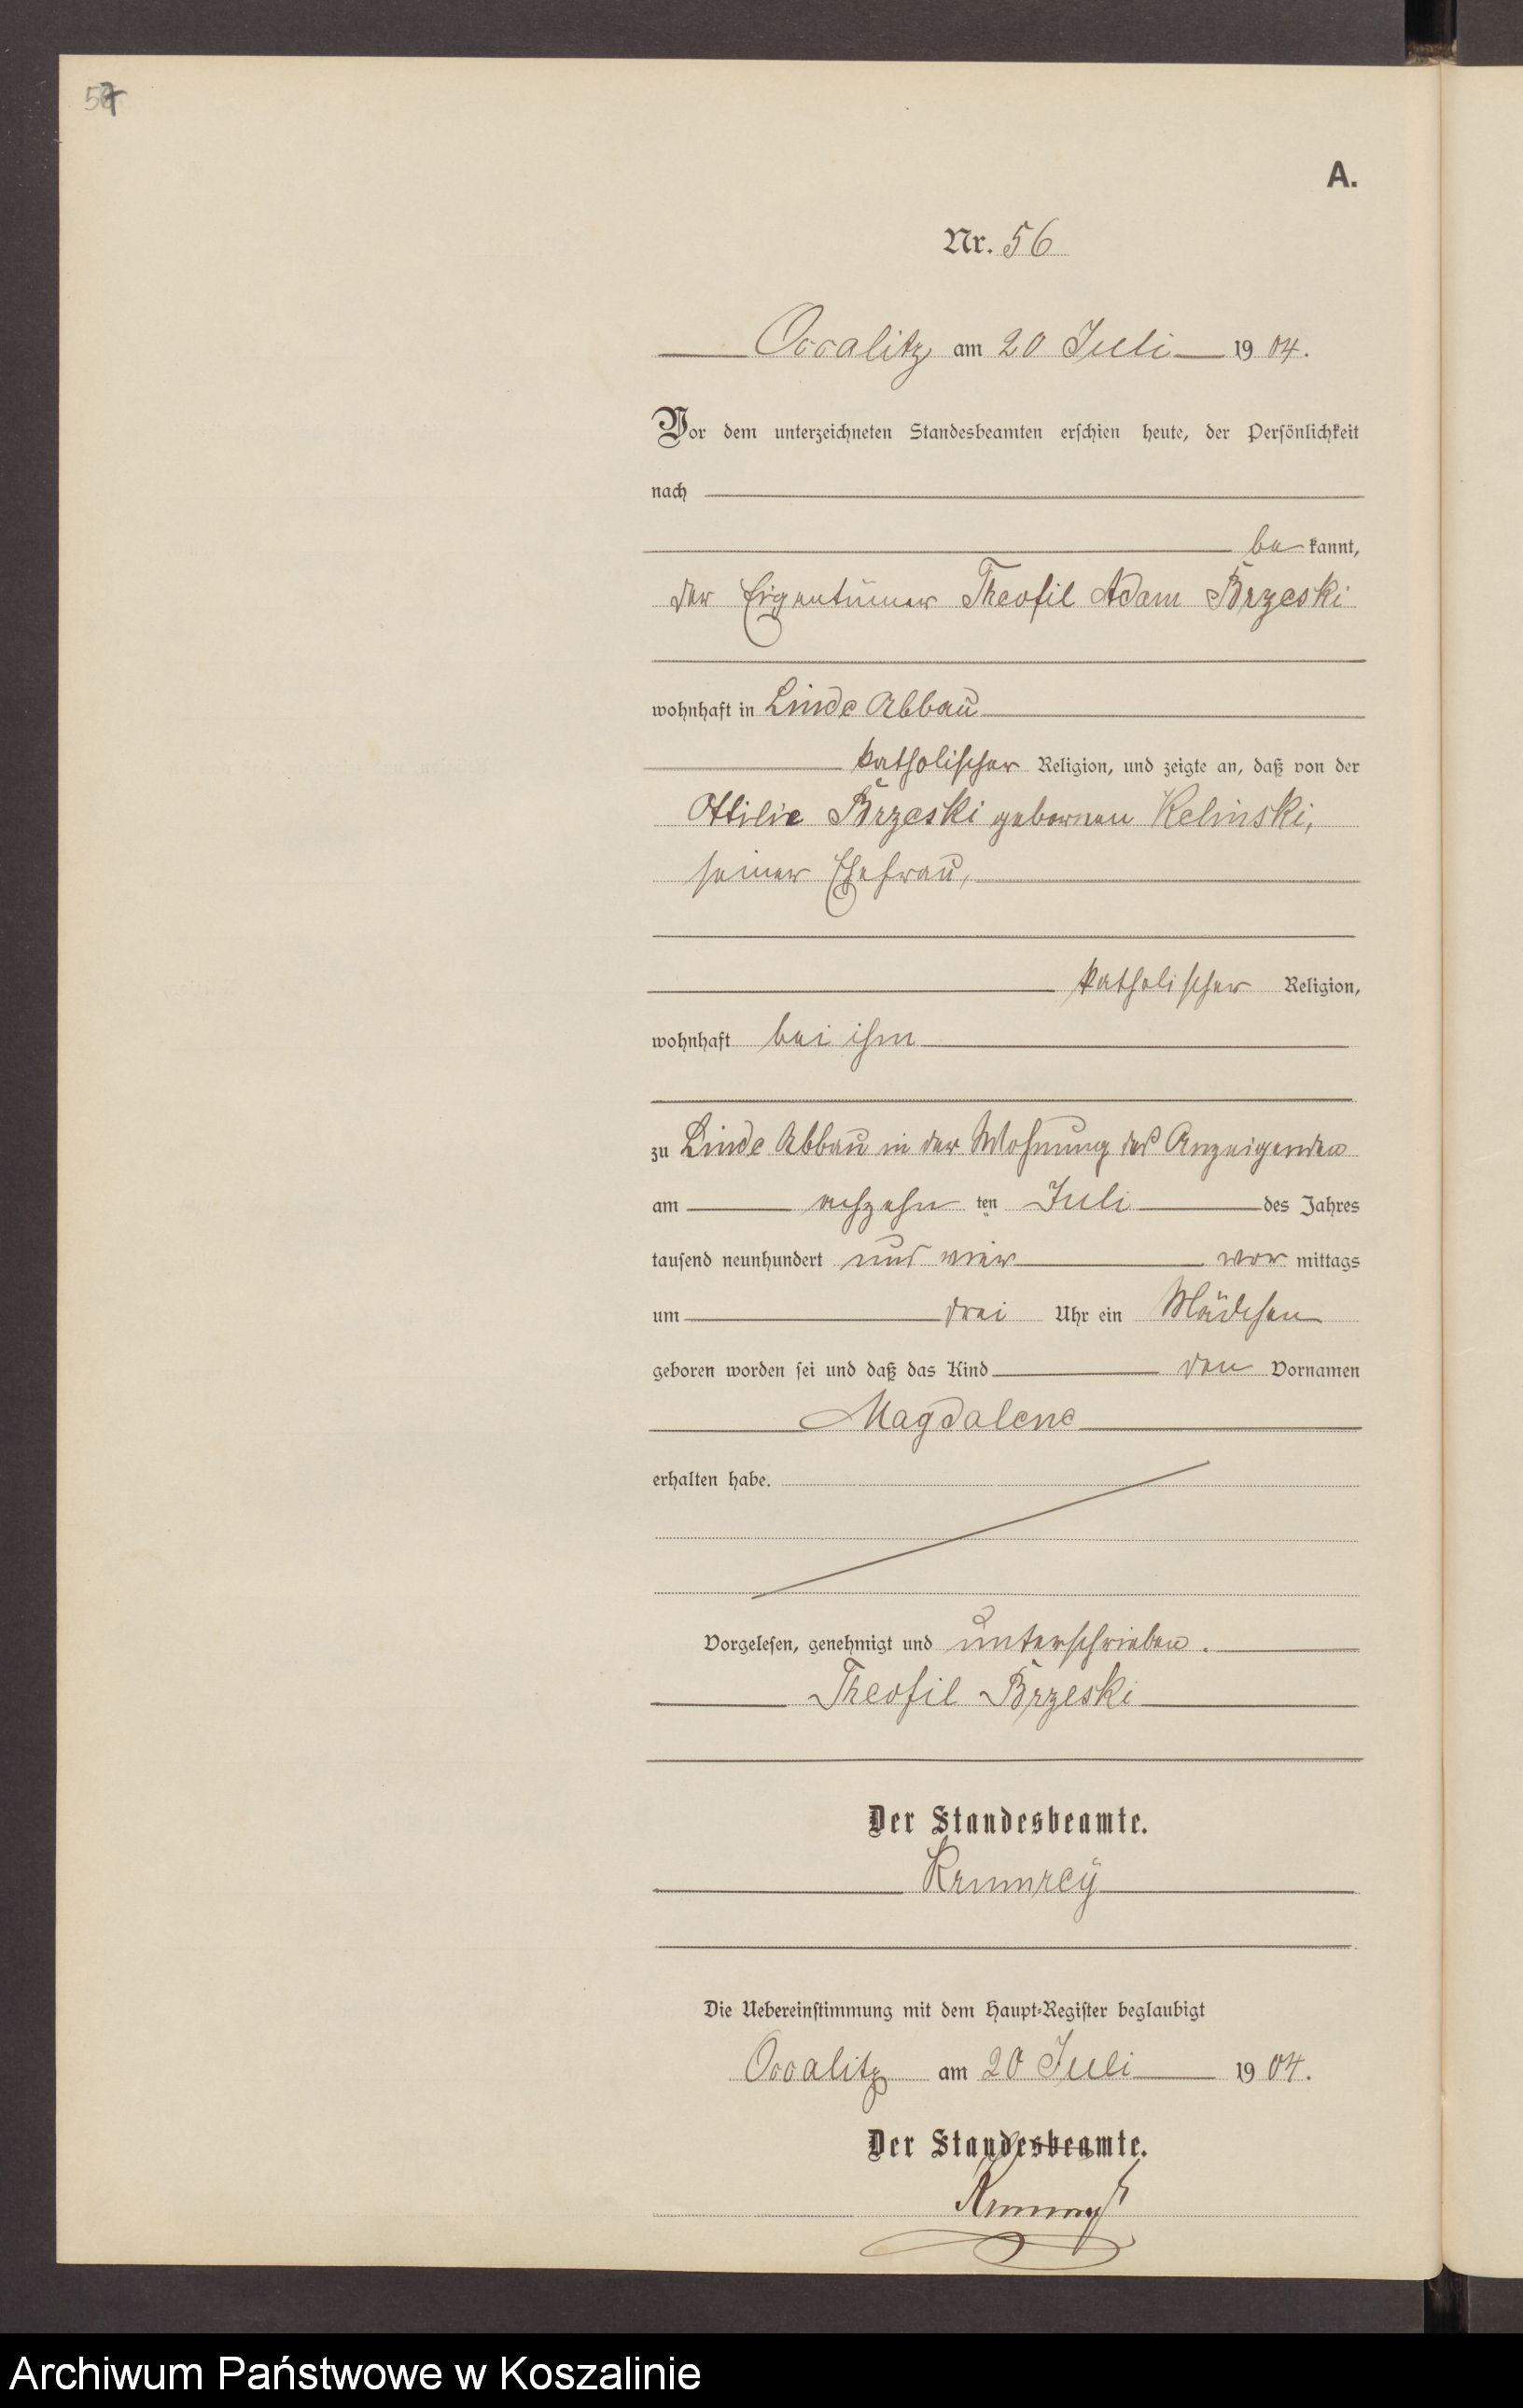 57
A.
Nr. 56
Occalitz am 20 Juli 1904.
Vor dem unterzeichneten Standesbeamten erschien heute, der Persönlichkeit
nach
be kannt,
der Eigentümer Theofil Adam Brzeski
wohnhaft in Linde Abbau
katholischer Religion, und zeigte an, daß von der
Ottilie Brzeski gebornen Kelinski,
seiner Ehefrau,
katholischer Religion,
wohnhaft bei ihm
zu Linde Abbau in der Wohnung des Anzeigenden
am achzehn ten Juli des Jahres
tausend neunhundert und vier vor mittags
um drei Uhr ein Mädchen
geboren worden sei und daß das Kind den Vornamen
Magdalene
erhalten habe.
Vorgelesen, genehmigt und unterschrieben.
Theofil Brzeski
Der Standesbeamte.
Krumrey
Die Uebereinstimmung mit dem Haupt-Register beglaubigt
Occalitz am 20 Juli 1904.
Der Standesbeamte.
Krumrey
Archiwum Państwowe w Koszalinie